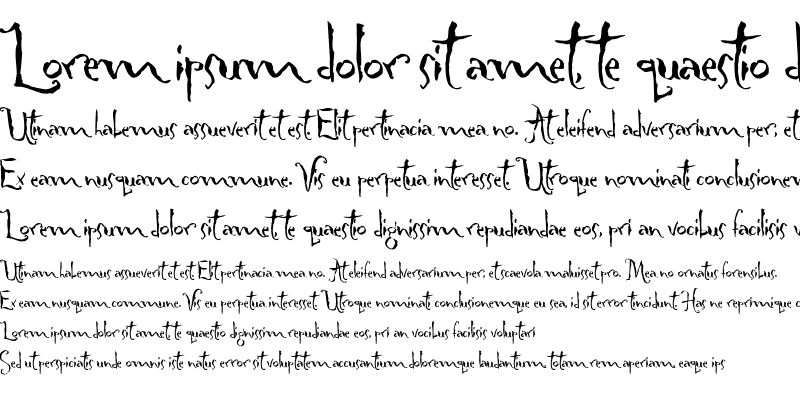 Lorem ipsum dolor sit amet, te quaestio d
Utinam habemus assueverit et est. Elit pertinacia mea no. At eleifend adversarium per, et
Ex eam nusquam commune. Vis eu perpetua interesset. Utroque nominati conclusionem
Lorem ipsum dolor sit amet, te quaestio dignissim repudiandae eos, pri an vocibus facilisis v
Utinam habemus assueverit et est. Elit pertinacia mea no. At eleifend adversarium per, et scaevola maluisset pro. Mea no ornatus forensibus.
Ex eam nusquam commune. Vis eu perpetua interesset. Utroque nominati conclusionemque eu sea, id sit error tincidunt. Has ne reprimique c
Lorem ipsum dolor sit amet, te quaestio dignissim repudiandae eos, pri an vocibus facilisis voluptari
Sed ut perspiciatis unde omnis iste natus error sit voluptatem accusantium doloremque laudantium, totam rem aperiam, eaque ips